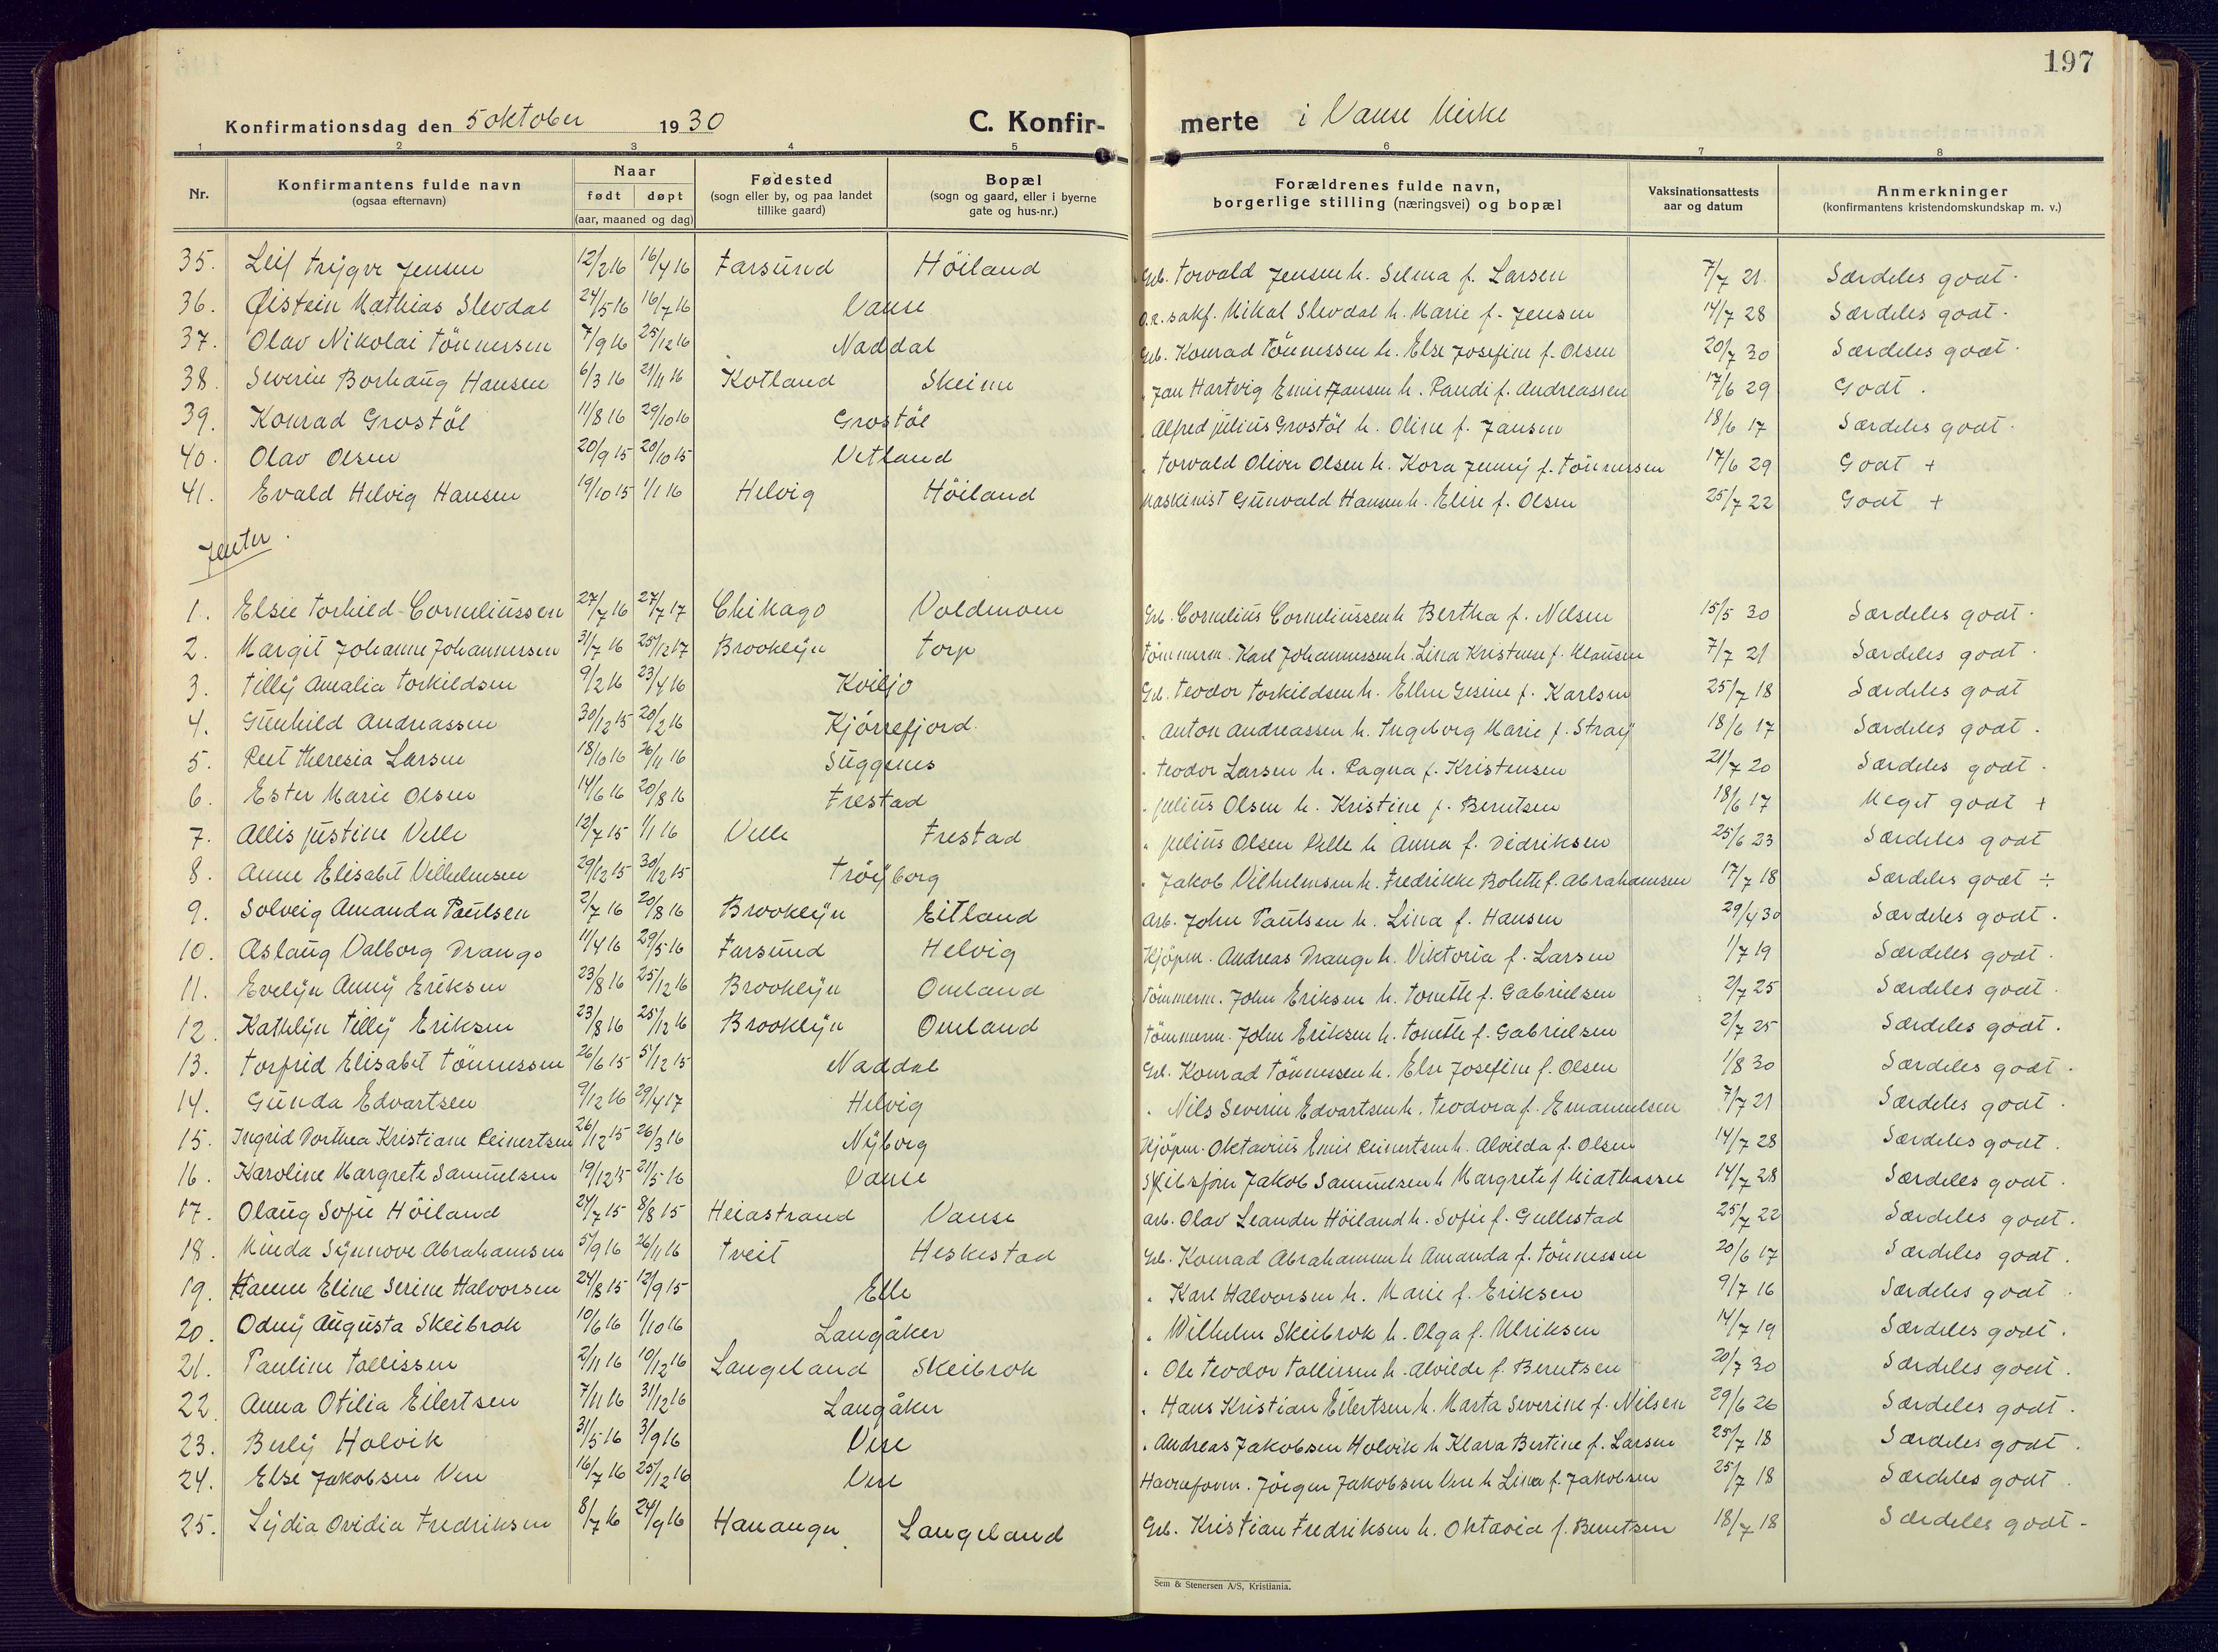 197
Konfirmationsdag den 5 oktober 1930 C. Konfir- merte i Vanse kirke
1 2 3 4 5 6 7 8
Nr. Konfirmantens fulde navn (ogsaa efternavn) Naar født døpt (aar, maaned og dag) Fødested (sogn eller by, og paa landet tillike gaard) Bopæl (sogn og gaard, eller i byerne gate og hus-nr.) Forældrenes fulde navn, borgerlige stilling (næringsvei) og bopæl Vaksinationsattests aar og datum Anmerkninger (konfirmantens kristendomskundskap m. v.)
35. Leif Trygve Jensen 12/2 16 16/4 16 Farsund Höiland Grb. Torvald Jensen h. Selma f. Larsen 7/7 21. Særdeles godt.
36. Øistein Mathias Slevdal 24/5 16 16/7 16 Vanse o.r.sakf. Mikal Slevdal h. Marie f. Jensen 14/7 28 Særdeles godt.
37. Olav Nikolai Tönnessen 7/9 16 25/12 16 Naddal Grb. Konrad Tönnessen h. Else Josefine f. Olsen 20/7 30 Særdeles godt.
38. Severin Borhaug Hansen 6/3 16 21/11 16 Kotland Skeime " Jan Hartvig Emil Hansen h. Randi f. Andreassen 17/6 29 Godt.
39. Konrad Grostöl 11/8 16 29/10 16 Grostöl " Alfred Julius Grostöl h. Oline f. Jansen 18/6 17 Særdeles godt.
40. Olav Olsen 20/9 15 20/10 15 Vetland " Torvald Oliver Olsen h. Kora Jenny f. Tönnessen 17/6 29 Godt +
41. Evald Helvig Hansen 19/10 15 1/1 16 Helvig Höiland Maskinist Gunvald Hansen h. Elise f. Olsen 25/7 22 Godt +
Jenter.
1. Elsie Torhild Corneliussen 27/7 16 27/7 17 Chikago Voldmoen Grb. Cornelius Corneliussen h Bertha f. Nilsen 15/5 30 Særdeles godt.
2. Margit Johanne Johannessen 31/7 16 25/12 17 Brooklyn Torp Tömmerm. Karl Johannessen h. Lina Kristense f. Klausen 7/7 21 Særdeles godt.
3. Tilly Amalia Torkildsen 9/2 16 23/4 16 Kviljo Grb. Teodor Torkildsen h. Ellen Gesine f. Karlsen 25/7 18 Særdeles godt
4. Gunhild Andreassen 30/12 15 20/2 16 Kjörrefjord. " Anton Andreassen h. Ingeborg Marie f. Stray 18/6 17 Særdeles godt.
5. Rut Theresia Larsen 18/10 16 26/11 16 Suggens " Teodor Larsen h. Ragna f. Kristensen 21/7 20 Særdeles godt.
6. Ester Marie Olsen 14/6 16 20/8 16 Frestad " Julius Olsen h. Kristine f. Berntsen 18/6 17 Meget godt +
7. Allis Justine Velle 12/7 15 1/1 16 Velle Frestad " Julius Olsen Velle h Anna f. Didriksen 25/6 23 Særdeles godt
8. Anne Elisabet Vilhelmsen 29/12 15 30/12 15 Tröyborg " Jakob Vilhelmsen h. Fredrikke Bolette f. Abrahamsen 17/7 18 Særdeles godt ÷
9. Solveig Amanda Paulsen 2/7 16 20/8 16 Brooklyn Eitland Arb. John Paulsen h. Lina f. Hansen 29/4 30 Særdeles godt.
10. Aslaug Valborg Drange 11/4 16 29/5 16 Farsund Helvig Kjöpm. Andreas Drange h. Viktoria f. Larsen 1/7 19 Særdeles godt.
11. Evelyn Anny Eriksen 23/8 16 25/12 16 Brooklyn Omland Tömmerm. John Eriksen h. Tonette f. Gabrielsen 2/7 25 Særdeles godt.
12. Kathlyn Tilly Eriksen 23/8 16 25/12 16 Brooklyn Omland Tömmerm. John Eriksen h. Tonette f. Gabrielsen 2/7 25 Særdeles godt.
13. Torfrid Elisabet Tönnessen 26/6 15 5/12 15 Naddal Grb. Konrad Tönnessen h. Else Josefine f. Olsen 1/8 30 Særdeles godt.
14. Gunda Edvartsen 9/12 16 29/4 17 Helvig " Nils Severin Edvartsen h. Teodora f. Emanuelsen 7/7 21 Særdeles godt.
15. Ingrid Dorthea Kristiane Reinertsen 26/12 15 26/3 16 Nyborg Kjöpm. Oktavius Emil Reinertsen h. Alvilda f. Olsen 14/7 28 Særdeles godt.
16. Karoline Margrete Samuelsen 19/12 15 21/5 16 Vanse Jakob Samuelsen h Margrete f 14/7 28 Særdeles godt.
17. Olaug Sofie Höiland 24/7 15 8/8 15 Heiastrand Vanse Arb. Olav Leander Höiland h. Sofie f. Gullestad 25/7 22 Særdeles godt.
18. Minda Synnove Abrahamsen 5/9 16 26/11 16 Tveit Heskestad Grb. Konrad Abrahamsen h Amanda f. Tönnessen 20/6 17 Særdeles godt.
19. Hanne Eline Serine Halvorsen 24/8 15 12/9 15 Elle " Karl Halvorsen h. Marie f. Eriksen 9/7 16 Særdeles godt
20. Odny Augusta Skeibrok 10/6 16 1/10 16 Langåker " Wilhelm Skeibrok h. Olga f. Ulriksen 14/7 19 Særdeles godt.
21. Pauline Tallissen 2/11 16 10/12 16 Langeland Skeibrok " Ole Teodor Tallissen h. Alvilde f. Berntsen 20/7 30 Særdeles godt.
22. Anna Otilia Eilertsen 7/11 16 31/12 16 Langåker " Hans Kristian Eilertsen h. Marta Severine f. Nilsen 29/6 26 Særdeles godt.
23. Berly Holvik 31/5 16 3/9 16 Vere " Andreas Jakobsen Holvik h Klara Bertine f. Larsen 25/7 18 Særdeles godt.
24. Else Jakobsen Vere 16/7 16 25/12 16 Vere Havneform. Jörgen Jakobsen Vere h Lina f. Jakobsen 25/7 18 Særdeles godt.
25. Lydia Ovidia Fredriksen 8/7 16 24/9 16 Hananger Langeland Grb. Kristian Fredriksen h. Oktavia f. Berntsen 18/7 18 Særdeles godt.
Sem & Stenersen A/S, Kristiania.